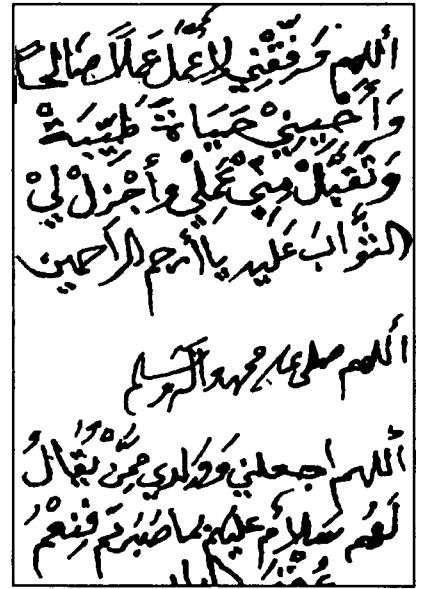 اللهم وَفِّقْنِي لأَعْمَلَ عَمَلاً صَالِحاً
وَأَحْيِينِيْ حَيَاةً طَيِّبَةً
وَتَقَبَّلْ مِنِّيْ عَمَلِيْ وأَجْزِلْ لِيْ
الثَّوَابَ عَلَيهِ يَا أرحم الراحمين
اللهم صلي على محمد وآله وسلم
اللهم اجعلني وَوَلدي مِمَّنْ يُقَالُ
لَهُم سَلاَم عليكم بما صَبَرتُم فَنِعْمَ
عُقْبَى الدار